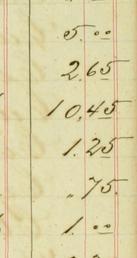 5.00
2.65
10.45
1.25
"75.
1.00